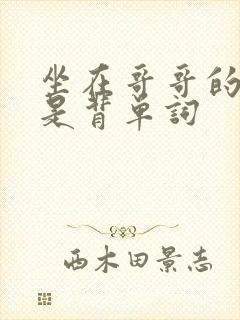 坐在哥哥的
是背单词
西木田景志